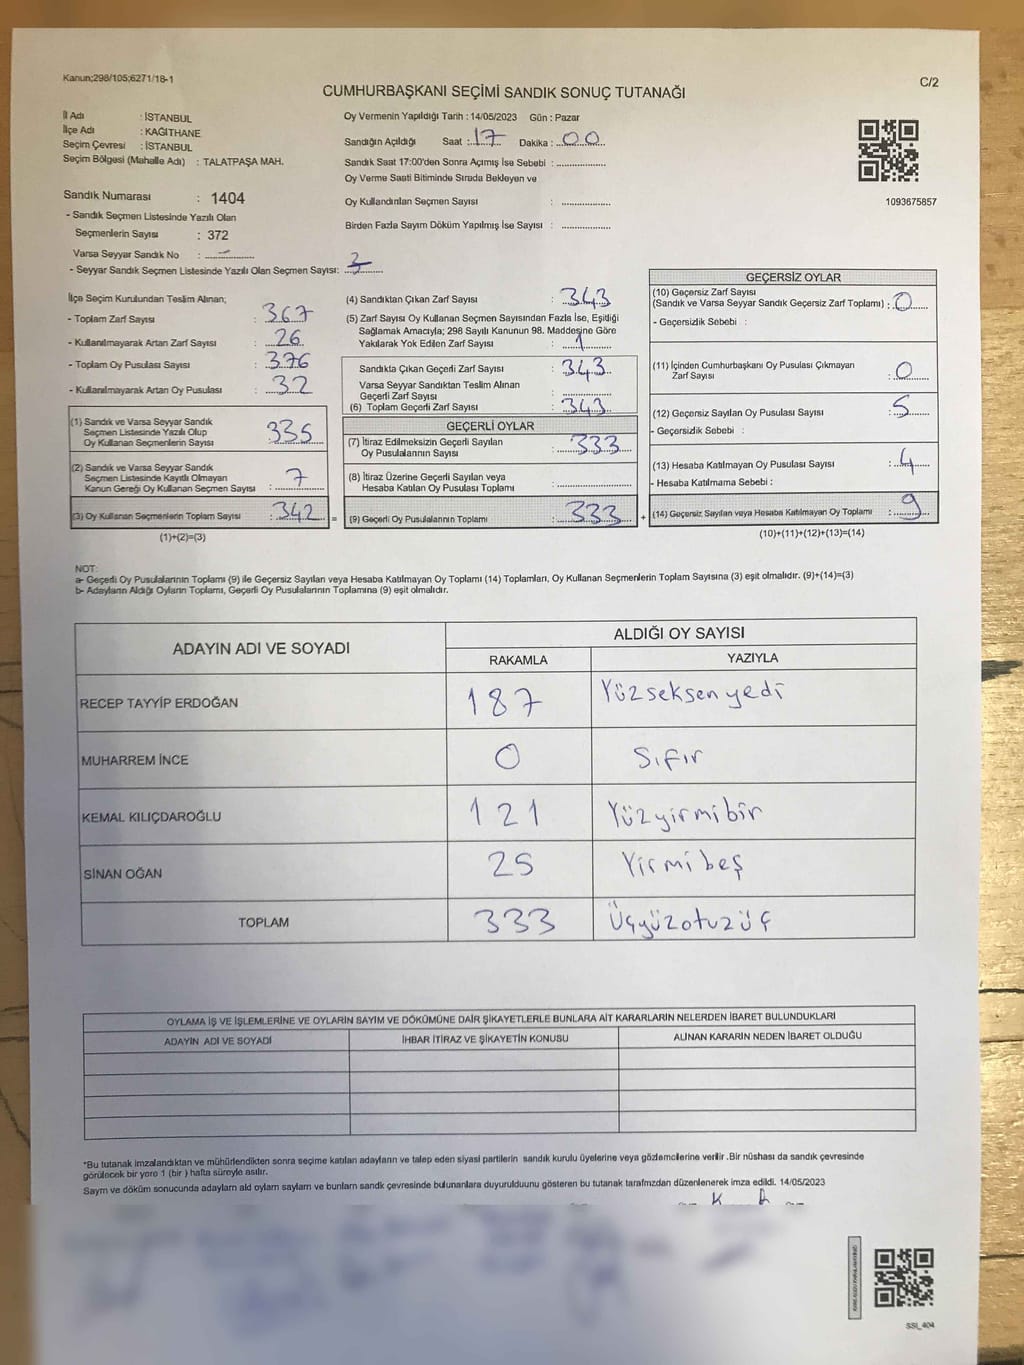 Kanun;298/105;6271/18-1
C/2
CUMHURBAŞKANI SEÇİMİ SANDIK SONUÇ TUTANAĞI
İl Adı : İSTANBUL
İlçe Adı : KAĞITHANE
Seçim Çevresi : İSTANBUL
Seçim Bölgesi (Mahalle Adı) : TALATPAŞA MAH.
Oy Vermenin Yapıldığı Tarih : 14/05/2023 Gün : Pazar
Sandığın Açıldığı Saat : 17 Dakika : 00
Sandık Saat 17:00'den Sonra Açımış İse Sebebi :
Oy Verme Saati Bitiminde Sırada Bekleyen ve
Oy Kullandırılan Seçmen Sayısı :
Birden Fazla Sayım Döküm Yapılmış İse Sayısı :
1093675857
Sandık Numarası : 1404
- Sandık Seçmen Listesinde Yazılı Olan
Seçmenlerin Sayısı : 372
Varsa Seyyar Sandık No : -
- Seyyar Sandık Seçmen Listesinde Yazılı Olan Seçmen Sayısı:
İlçe Seçim Kurulundan Teslim Alınan;
- Toplam Zarf Sayısı : 367
- Kullanılmayarak Artan Zarf Sayısı : 26
- Toplam Oy Pusulası Sayısı : 376
- Kullanılmayarak Artan Oy Pusulası : 32
(1) Sandık ve Varsa Seyyar Sandık
Seçmen Listesinde Yazılı Olup
Oy Kullanan Seçmenlerin Sayısı : 335
(2) Sandık ve Varsa Seyyar Sandık
Seçmen Listesinde Kayıtlı Olmayan
Kanun Gereği Oy Kullanan Seçmen Sayısı : 7
(3) Oy Kullanan Seçmenlerin Toplam Sayısı : 342
(1)+(2)=(3)
(4) Sandıktan Çıkan Zarf Sayısı : 343
(5) Zarf Sayısı Oy Kullanan Seçmen Sayısından Fazla İse, Eşitliği
Sağlamak Amacıyla; 298 Sayılı Kanunun 98. Maddesine Göre
Yakılarak Yok Edilen Zarf Sayısı : 1
Sandıkta Çıkan Geçerli Zarf Sayısı : 343
Varsa Seyyar Sandıktan Teslim Alınan
Geçerli Zarf Sayısı :
(6) Toplam Geçerli Zarf Sayısı : 343
GEÇERLİ OYLAR
(7) İtiraz Edilmeksizin Geçerli Sayılan
Oy Pusulalarının Sayısı : 333
(8) İtiraz Üzerine Geçerli Sayılan veya
Hesaba Katılan Oy Pusulası Toplamı :
= (9) Geçerli Oy Pusulalarının Toplamı : 333 +
GEÇERSİZ OYLAR
(10) Geçersiz Zarf Sayısı
(Sandık ve Varsa Seyyar Sandık Geçersiz Zarf Toplamı) : 0
- Geçersizlik Sebebi :
(11) İçinden Cumhurbaşkanı Oy Pusulası Çıkmayan
Zarf Sayısı : 0
(12) Geçersiz Sayılan Oy Pusulası Sayısı : 5
- Geçersizlik Sebebi :
(13) Hesaba Katılmayan Oy Pusulası Sayısı : 4
- Hesaba Katılmama Sebebi :
(14) Geçersiz Sayılan veya Hesaba Katılmayan Oy Toplamı : 9
(10)+(11)+(12)+(13)=(14)
NOT:
a- Geçerli Oy Pusulalarının Toplamı (9) ile Geçersiz Sayılan veya Hesaba Katılmayan Oy Toplamı (14) Toplamları, Oy Kullanan Seçmenlerin Toplam Sayısına (3) eşit olmalıdır. (9)+(14)=(3)
b- Adayların Aldığı Oyların Toplamı, Geçerli Oy Pusulalarının Toplamına (9) eşit olmalıdır.
ADAYIN ADI VE SOYADI ALDIĞI OY SAYISI
RAKAMLA YAZIYLA
RECEP TAYYİP ERDOĞAN 187 Yüzseksenyedi
MUHARREM İNCE 0 Sıfır
KEMAL KILIÇDAROĞLU 121 Yüzyirmibir
SİNAN OĞAN 25 Yirmibeş
TOPLAM 333 Üçyüzotuzüç
OYLAMA İŞ VE İŞLEMLERİNE VE OYLARIN SAYIM VE DÖKÜMÜNE DAİR ŞİKAYETLERLE BUNLARA AİT KARARLARIN NELERDEN İBARET BULUNDUKLARI
ADAYIN ADI VE SOYADI İHBAR İTİRAZ VE ŞİKAYETİN KONUSU ALINAN KARARIN NEDEN İBARET OLDUĞU
*Bu tutanak imzalandıktan ve mühürlendikten sonra seçime katılan adayların ve talep eden siyasi partilerin sandık kurulu üyelerine veya gözlemcilerine verilir .Bir nüshası da sandık çevresinde
görülecek bir yere 1 (bir ) hafta süreyle asılır.
Sayım ve döküm sonucunda adayların ald oyların sayıları ve bunların sandk çevresinde bulunanlara duyurulduunu gösteren bu tutanak tarafmzdan düzenlenerek imza edildi. 14/05/2023
SSI_404